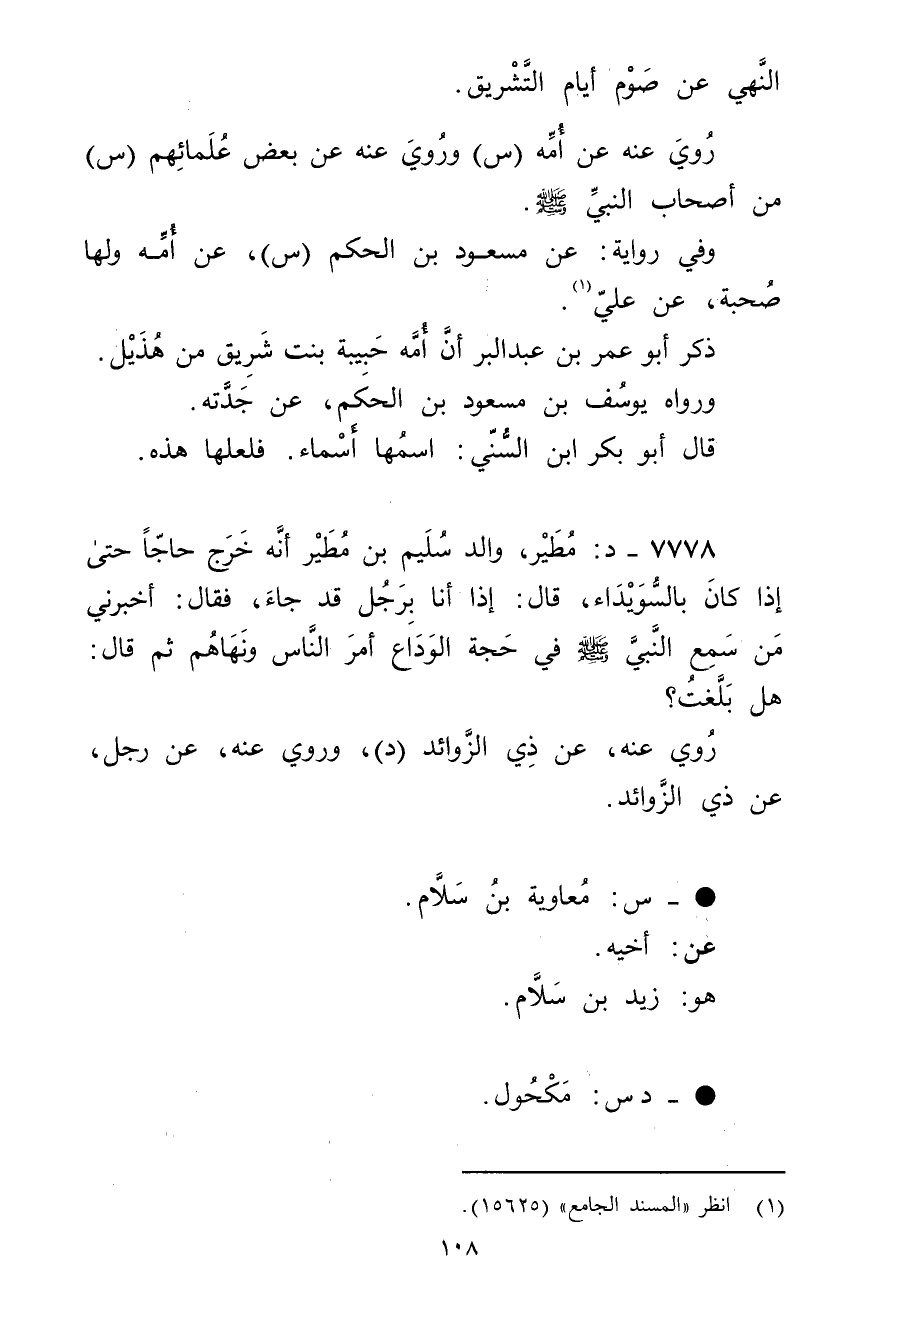 النَّهي عن صَوْم أيام التَّشْريق.
رُويَ عنه عن أُمِّه (س) ورُويَ عنه عن بعض عُلَمائِهم (س)
من أصحاب النبيِّ ﷺ.
وفي رواية: عن مسعود بن الحكم (س)، عن أُمِّه ولها
صُحبة، عن عليّ(١).
ذكر أبو عمر بن عبدالبر أنَّ أُمَّه حَبِيبة بنت شَرِيق من هُذَيْل.
ورواه يوسُف بن مسعود بن الحكم، عن جَدَّته.
قال أبو بكر ابن السُّنّي: اسمُها أَسْماء. فلعلها هذه.
٧٧٧٨ ـ د: مُطَيْر، والد سُلَيم بن مُطَيْر أنَّه خَرَج حاجّاً حتىٰ
إذا كانَ بالسُّوَيْدَاء، قال: إذا أنا بِرَجُل قد جاءَ، فقال: أخبرني
مَن سَمِع النَّبيَّ ﷺ في حَجة الوَدَاع أمرَ النَّاس ونَهَاهُم ثم قال:
هل بَلَّغتُ؟
رُوي عنه، عن ذِي الزَّوائد (د)، وروي عنه، عن رجل،
عن ذي الزَّوائد.
● ـ س: مُعاوية بنُ سَلَّام.
عن: أخيه.
هو: زيد بن سَلَّام.
● ـ د س: مَكْحُول.
(١) انظر «المسند الجامع» (١٥٦٢٥).
١٠٨